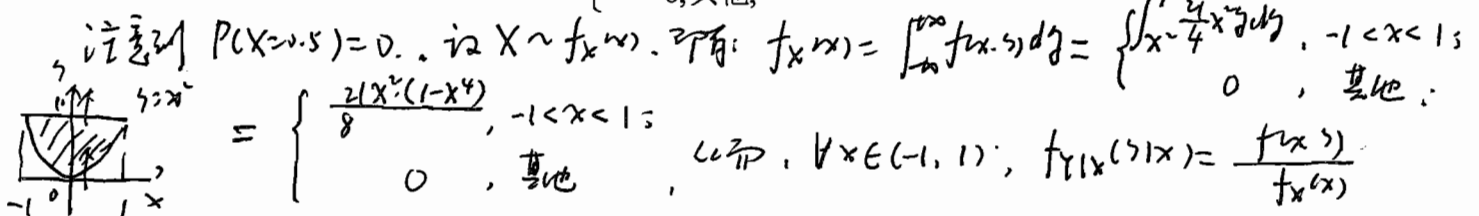 0, 其他,
注意到 P(X=0.5)=0. . 记 X~f_X(x). 即有: f_X(x) = ∫_{-∞}^{+∞} f(x.y)dy = { ∫_{x²}^{1} 21/4 x²y dy , -1<x<1; 0 , 其他 .
y 1 y=x² -1 0 1 x
= { 21x²·(1-x⁴)/8 , -1<x<1; 0 , 其他 , 从而 , ∀x∈(-1, 1) , f_{Y|X}(y|x) = f(x y)/f_X(x)